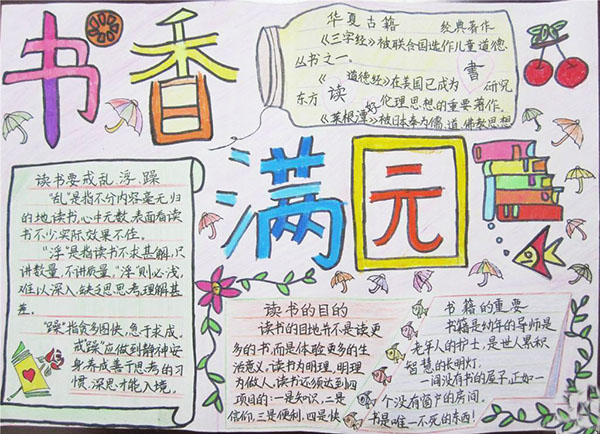 书香
满园
华夏古籍 经典著作
《三字经》被联合国选作儿童道德
丛书之一。
《道德经》在美国已成为 研究
东方 伦理思想的重要著作。
《菜根谭》被日本奉为儒、道、佛教思想
读好書
读书要戒乱、浮、躁
“乱”是指不分内容毫无归
的地读书,心中无数,表面看读
书不少实际效果不佳。
“浮”是指读书不求甚解,只
讲数量,不讲质量,“浮”则必浅,
难以深入,缺乏思思考,理解甚
差。
“躁”指贪多图快,急于求成,
戒“躁”应做到静神安
身养成善于思考的习
惯,深思才能入境。
读书的目的
读书的目地并不是读更
多的书,而是体验更多的生
活意义,读书为明理,明理
为做人,读书还须达到四
项目的:一是知识,二是
信仰,三是便利,四是快
书籍的重要
书籍是幼年的导师是
老年人的护士,是世人累积
智慧的长明灯。
一间没有书的屋子,正如一
个没有窗户的房间。
书是唯一不死的东西!